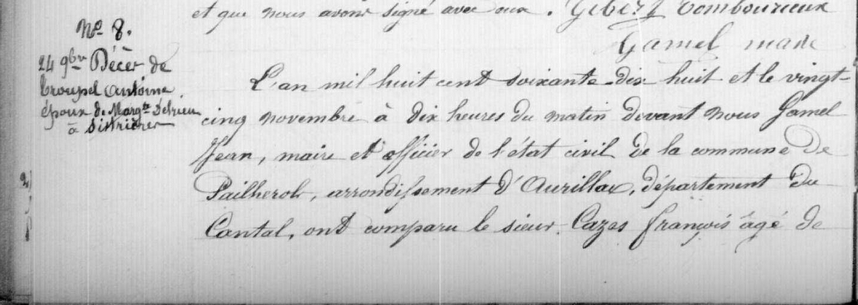 et que nous avons signé avec eux. Gibert Combourieux
Gamel maire
Nº 8.
24 9bre Décès de
Croupel Antoine
époux de Margte
à
L'an mil huit cent soixante-dix huit et le vingt-
cinq novembre à dix heures du matin devant nous Gamel
Jean, maire et officier de l'état civil de la commune de
Pailherols, arrondissement d'Aurillac, département du
Cantal, ont comparu le sieur Cazes françois âgé de